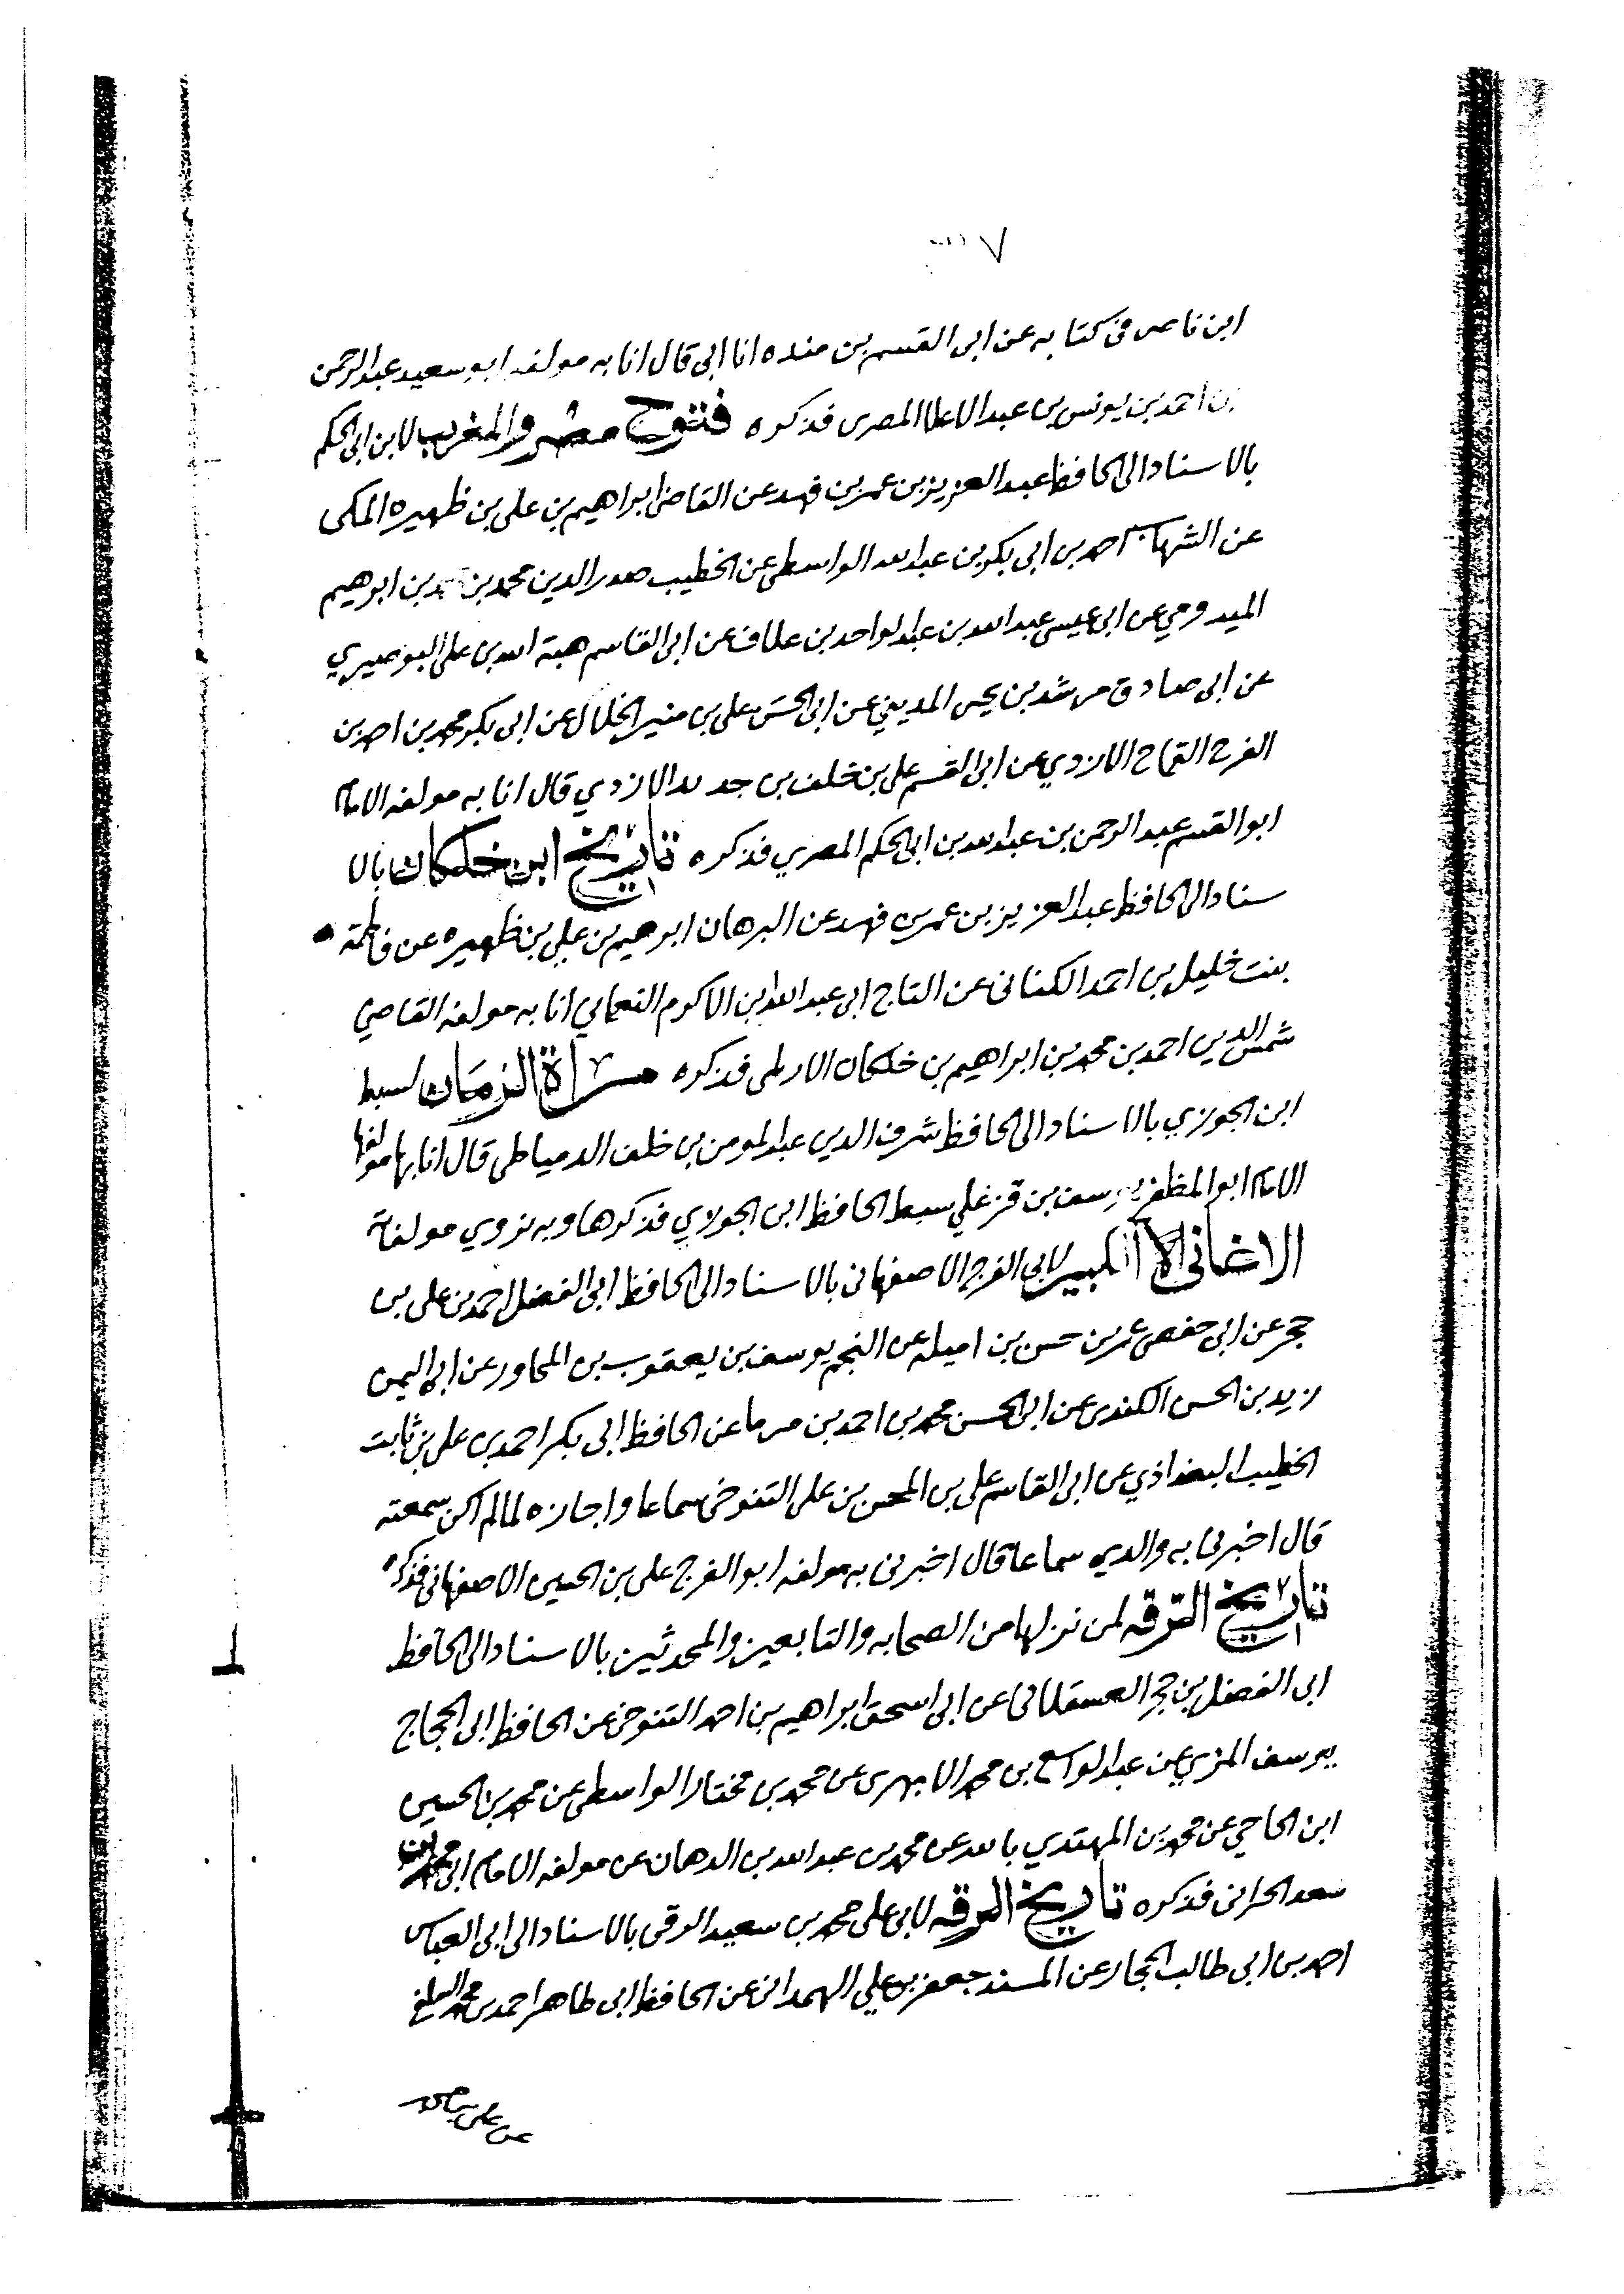 ٧
ابن ناصر في كتابه عن ابى القسم بن منده انا ابي قال انا به مولفه ابو سعيد عبد الرحمن
بن احمد بن يونس بن عبد الاعلا المصرى فذكره فتوح مصر والمغرب لابن ابى الحكم
بالاسناد الى الحافظ عبد العزيز بن عمر بن فهد عن القاضي ابراهيم بن على بن ظهيره المكى
عن الشهاب احمد بن ابى بكر بن عبد الله الواسطى عن الخطيب صدر الدين محمد بن محمد بن ابرهيم
الميدومي عن ابى عيسى عبد الله بن عبد الواحد بن علاف عن ابى القاسم هبة الله بن على البوصيري
عن ابى صادق مرشد بن يحيى المديني عن ابى الحسن على بن منير الخلال عن ابى بكر محمد بن احمد بن
الفرج القماح الازدي عن ابى القسم على بن خلف بن جديد الازدي قال انا به مولفه الامام
ابو القسم عبد الرحمن بن عبد الله بن ابى الحكم المصري فذكره تاريخ ابن خلكان بالا
سناد الى الحافظ عبد العزيز بن عمر بن فهد عن البرهان ابرهيم بن علي بن ظهيره عن فاطمة
بنت خليل بن احمد الكنانى عن التاج ابى عبد الله ابن الاكرم النعماني انا به مولفه القاضي
شمس الدين احمد بن محمد بن ابراهيم بن خلكان الاربلى فذكره مراة الزمان لسبط
ابن الجوزي بالاسناد الى الحافظ شرف الدين عبد المومن بن خلف الدمياطى قال انا بها مولفها
الامام ابو المظفر يوسف بن قزغلي سبط الحافظ ابن الجوزي فذكرها وبه نروي مولفاته
الاغانى الكبير لابي الفرج الاصفهانى بالاسناد الى الحافظ ابى الفضل احمد بن على بن
حجر عن ابى حفص عمر بن حسن بن اميله عن النجم يوسف بن يعقوب بن المجاور عن ابى اليمن
زيد بن الحسن الكندى عن ابى الحسن محمد بن احمد بن صرما عن الحافظ ابى بكر احمد بن على بن ثابت
الخطيب البغداذي عن ابى القاسم على بن المحسن بن على التنوخى سماعا واجازه لما لم اكن سمعته
قال اخبرنى به والدي سماعا قال اخبرنى به مولفه ابو الفرج على بن الحسين الاصفهانى فذكره
تاريخ الرقه لمن نزلها من الصحابه والتابعين والمحدثين بالاسناد الى الحافظ
ابى الفضل بن حجر العسقلانى عن ابى اسحق ابراهيم بن احمد التنوخى عن الحافظ ابى الحجاج
يوسف المزي عن عبد الواسع بن محمد الابهرى عن محمد بن مختار الواسطى عن محمد بن الحسين
ابن الحاجي عن محمد بن المهتدي بالله عن محمد بن عبد الله بن الدهان عن مولفه الامام ابى محمد بن
سعد الحرانى فذكره تاريخ الرقه لابى على محمد بن سعيد الرقى بالاسناد الى ابى العباس
احمد بن ابى طالب الحجار عن المسند جعفر بن علي الهمدانى عن الحافظ ابى طاهر احمد بن محمد السلفى
عن على بن